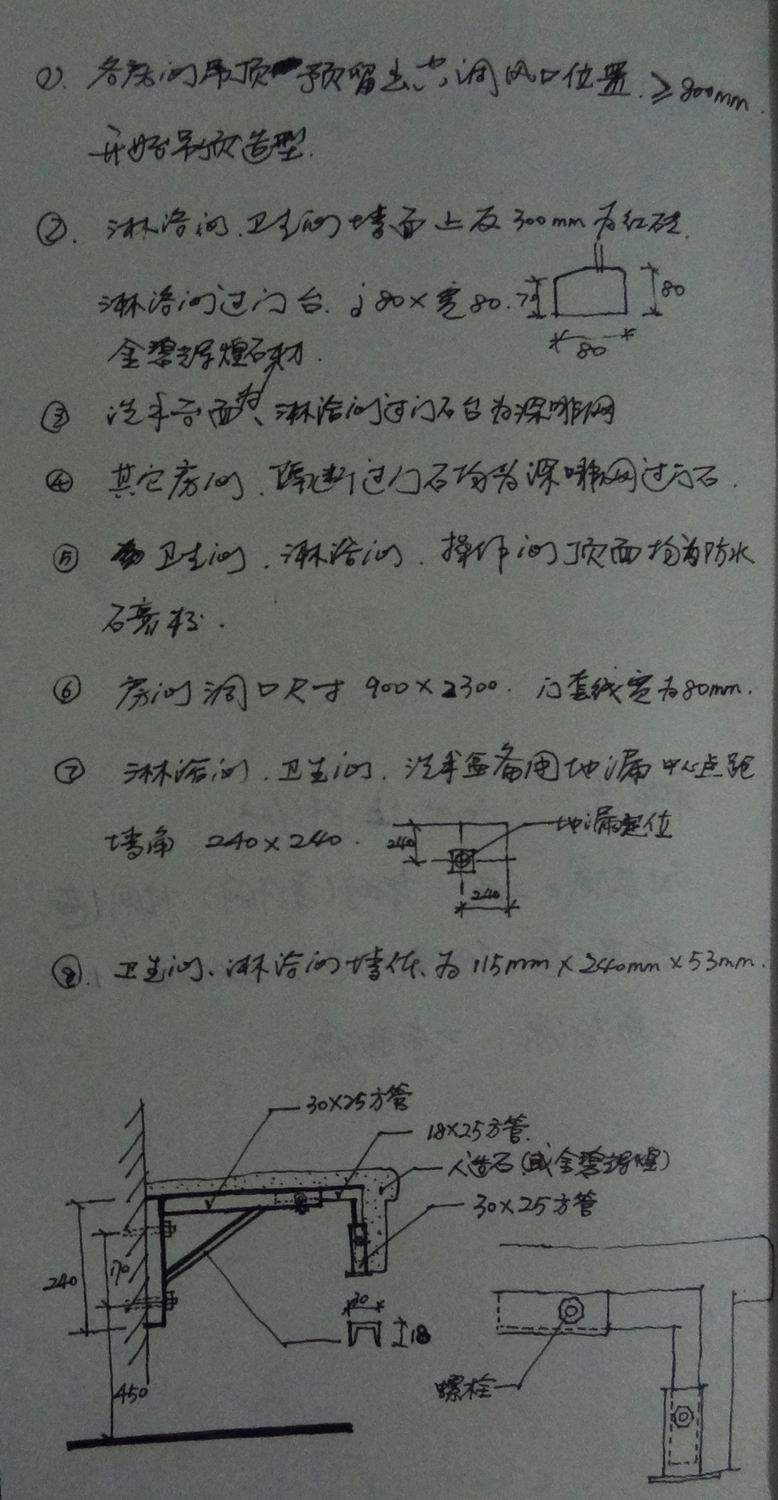 ①. 各房间吊顶预留出空调风口位置.≥800mm.
开始吊顶造型.
②. 淋浴间.卫生间墙面上反300mm为红砖.
淋浴间过门台. 高80×宽80.
75
80
80
金碧辉煌石材.
③ 洗手台面为、淋浴间过门石台为深啡网
④ 其它房间.隔断过门石均为深啡网过门石.
⑤ 卫生间.淋浴间.操作间顶面均为防水
石膏板.
⑥ 房间洞口尺寸 900×2300. 门套线宽为80mm.
⑦ 淋浴间.卫生间.洗手盆备用地漏中心点距
墙角 240×240.
240
地漏定位
240
⑧. 卫生间、淋浴间墙体、为115mm×240mm×53mm.
30×25方管
18×25方管.
人造石(或金碧辉煌)
30×25方管
240
170
30
18
450
螺栓